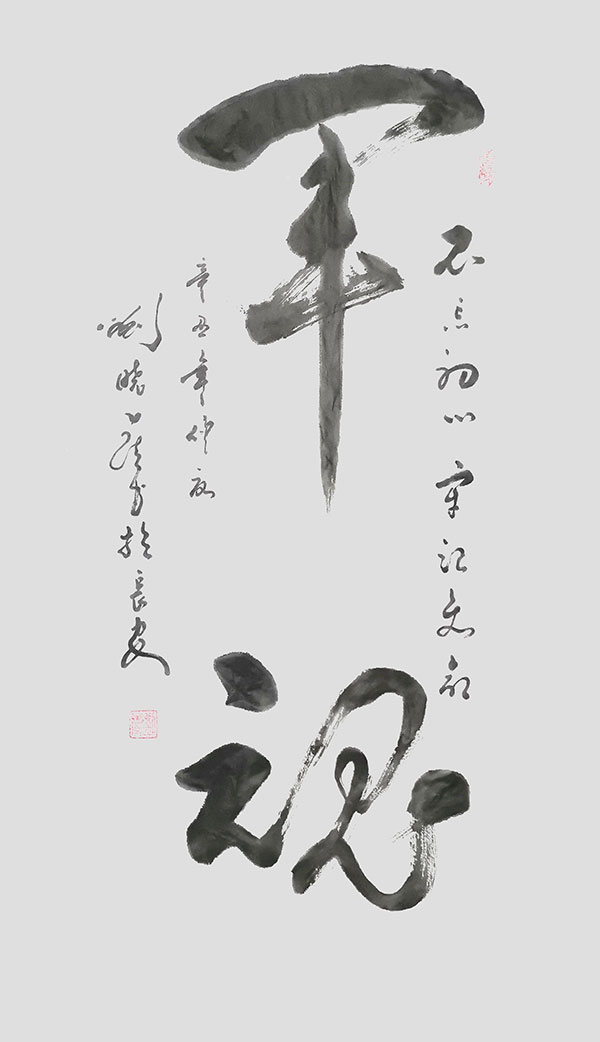 不忘初心牢记使命
军魂
辛丑年仲夏
刘晓 书于长安